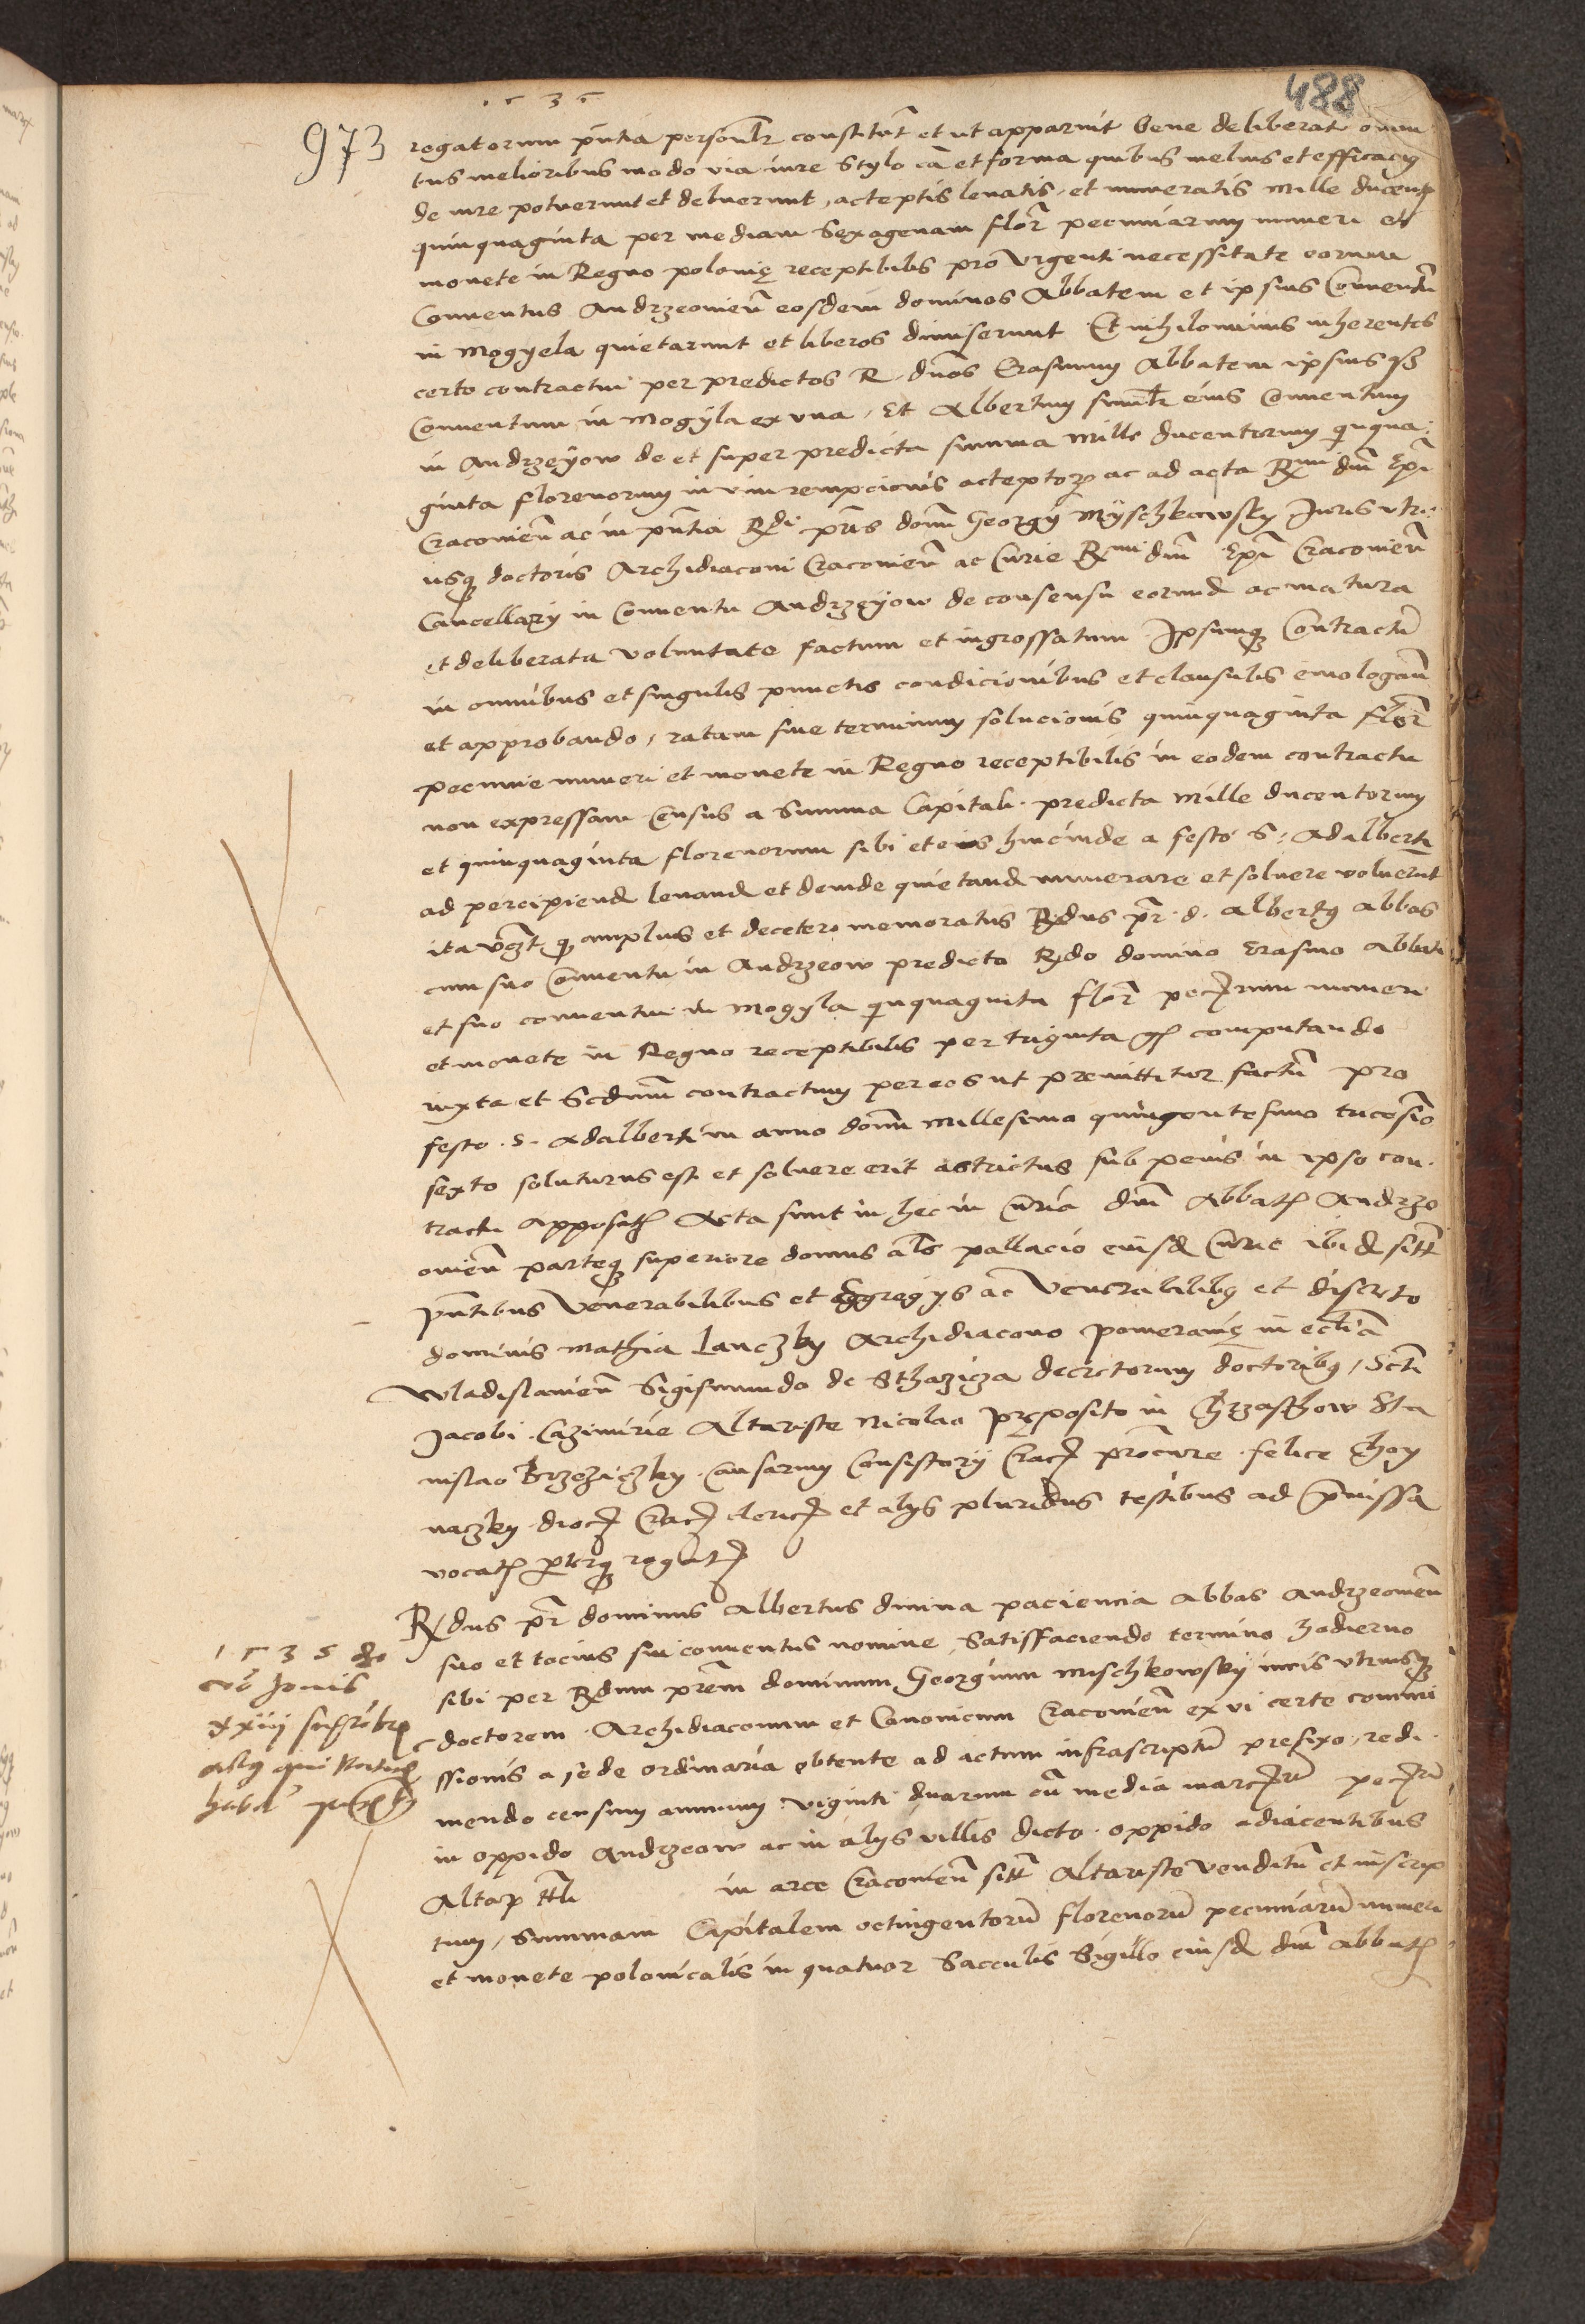 1535
488
973
rogatorum pntia personlr constitut et ut apparuit bene deliberat omni
bus melioribus modo via iure Stylo ca et forma quibus melius et efficacius
de iure potuerunt et debuerunt, acceptis levatis, et numeratis Mille ducent
quinquaginta per mediam Sexagenam flor pecuniarum numeri et
monete in Regno polonię receptibilis pro urgenti necessitate eorum
Conventus Andrzeovien eosdem dominos Abbatem et ipsius Conventum
in Mogyela quietarunt et liberos dimiserunt Et nihilominus inherentes
certo contractui per predictos R. dnos Erasmum Abbatem ipsius
Conventum in Mogyla ex una, Et Albertum similr eius Conventum
in Andrzeyow de et super predicta summa Mille ducentorum quiqua:
ginta florenorum in vim reempcionis acceptor ac ad acta Rmi dni Epi
Cracovien ac in pntia Rdi pris domi Georgij Myschkowsky Juris utri:
usq doctoris Archidiaconi Cracovien ac Curie Rmi dni Epi Cracovien
Cancellarij in Conventu Andrzeyow de consensu eorund ac matura
et deliberata voluntate factum et ingrossatum Ipsumq Contractum
in omnibus et singulis punctis condicionibus et clausulis emologan
et approbando, ratam sive terminum solucionis quinquaginta flor
pecunie numeri et monete in Regno receptibilis in eodem contractu
non expressam Census a Summa Capitali predicta Mille ducentorum
et quinquaginta florenorum sibi et eius hincinde a festo S: Adalberti
ad percipiend levand et deinde quietand numerare et solvere voluerunt
ita vzt q amplius et decetero memoratus Rdus pr d. Albertus Abbas
cum suo Conventu in Andrzeow predicto Rdo domino Erasmo Abbati
et suo conventui in Mogyla quiquaginta flor pecrum numeri
et monete in Regno receptibilis per triginta gr computando
iuxta et Scdum contractum per eos ut premittitur factum pro
festo S. Adalberti in anno domi Millesimo quingentesimo tricesimo
sexto soluturus est et solvere erit astrictus sub penis in ipso con
tractu apposit Acta sunt in hec in Curia dni Abbatis Andrze
ovien parteq superiore domus als pallacio eiusd Curie ibid sitt
Pntibus Venerabilibus et Egregijs ac Venerabilibus et discreto
dominis Mathia Lanczky Archidiacono Pomeranię in ecclia
Wladislavien Sigismundo de Sthazicza decretorum doctoribus, Scti
Jacobi Cazimirie Altariste Nicolao pręposito in Chrzasthow Sta
nislao Brzeziczky Causarum Consistorij Crac procurre felice Choy
naczky dioc Crac cleric et alijs pluribus testibus ad premissa
vocatis rogat
Rdus pr dominus Albertus divina paciencia Abbas Andrzeovien
suo et tocius sui conventus nomine Satisfaciendo termino hodierno
sibi per Rdum prem dominum Georgium Mischkowsky iuris utriusq
doctorem Archidiaconum et Canonicum Cracovien ex vi certe commi
ssionis a sede ordinaria obtente ad actum infrascriptum prefixo, redi
mendo censum annuum viginti duarum cu media marcrum pecrum
in oppido Andrzeow ac in alijs villis dicto oppido adiacentibus
Altaris ttli in arce Cracovien sitt Altariste venditum et inscrip
tum, Summam Capitalem octingentorum florenorum pecuniarum numeri
et monete polonicalis in quatuor Sacculis Sigillo eiusd dni abbatis
1535
Jovis
xxiij